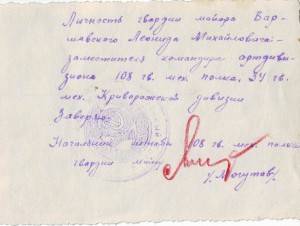 Личность гвардии майора Вар-
шавского Леонида Михайловича -
заместителя командира артдиви-
зиона 108 гв. мех. полка, 34 гв.
мех. Криворожской дивизии
Заверяю.
Начальник штаба 108 гв. мех. полка
гвардии
/Могутов/